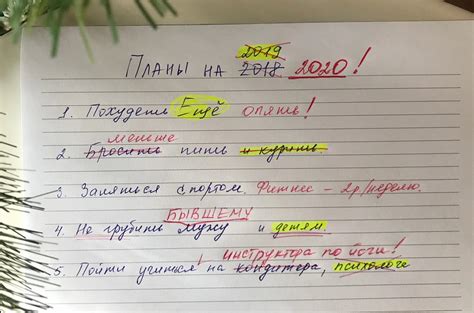 2019
Планы на 2018 2020!
1. Похудеть Ещё опять!
меньше
2. Бросить пить и курить.
3. Заняться спортом. Фитнес – 2р/неделю.
БЫВШЕМУ
4. Не грубить мужу и детям.
! инструктора по йоги!
5. Пойти учиться на кондитера, психолога